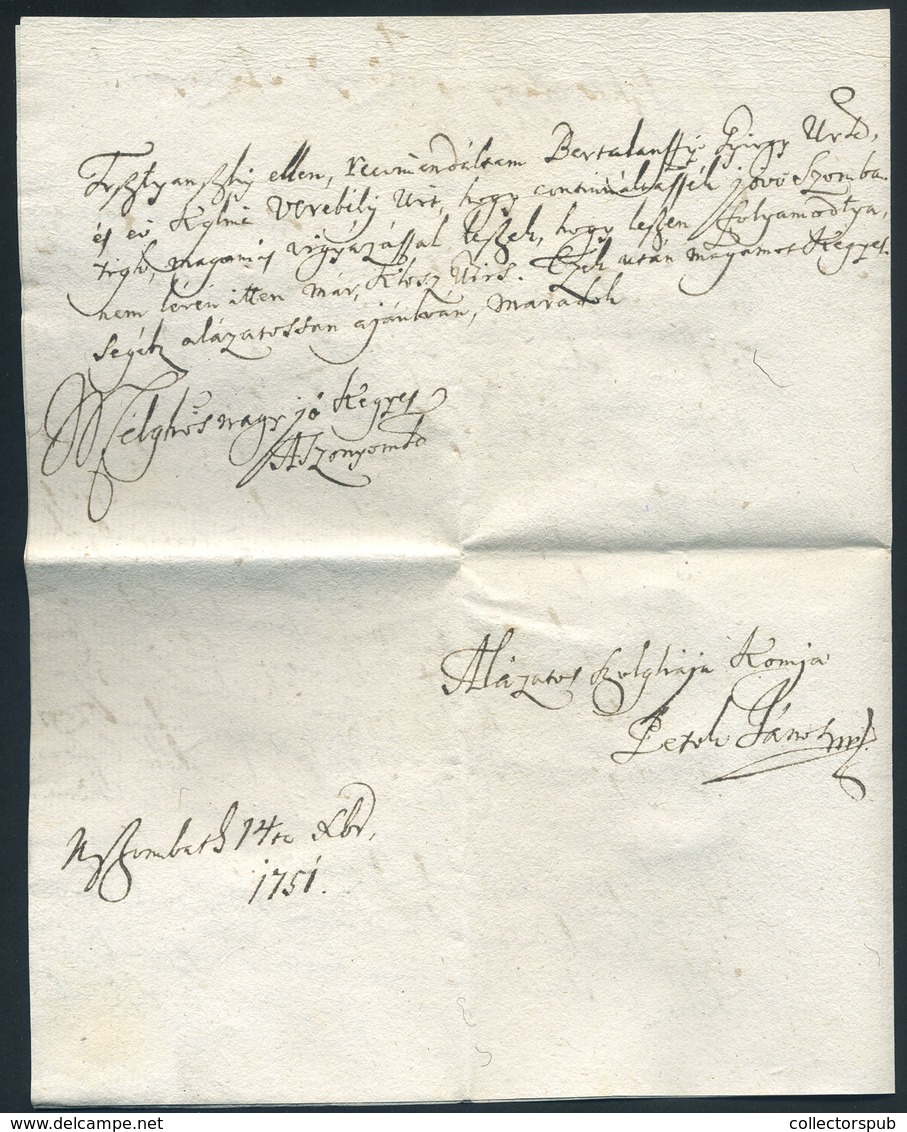 ellen, recomendáltam Bertalanffy György Urat,
és eö Kglmé Verebély Urt, hogy continuáltassék jövö Szomba
tigh, magamis vigyazással leszek, hogy leszen folyamodtya,
nem lévén itten már, Után magamot Kegyes
segéb alázatossan ajánlván, maradok
Mélghos nagy jó Kegyes
Aszonyomk
Alázatos szolghája Komja
Petok János mp.
NSzombath 14ta Xbr,
1751.
www.delcampe.net
collectorspub